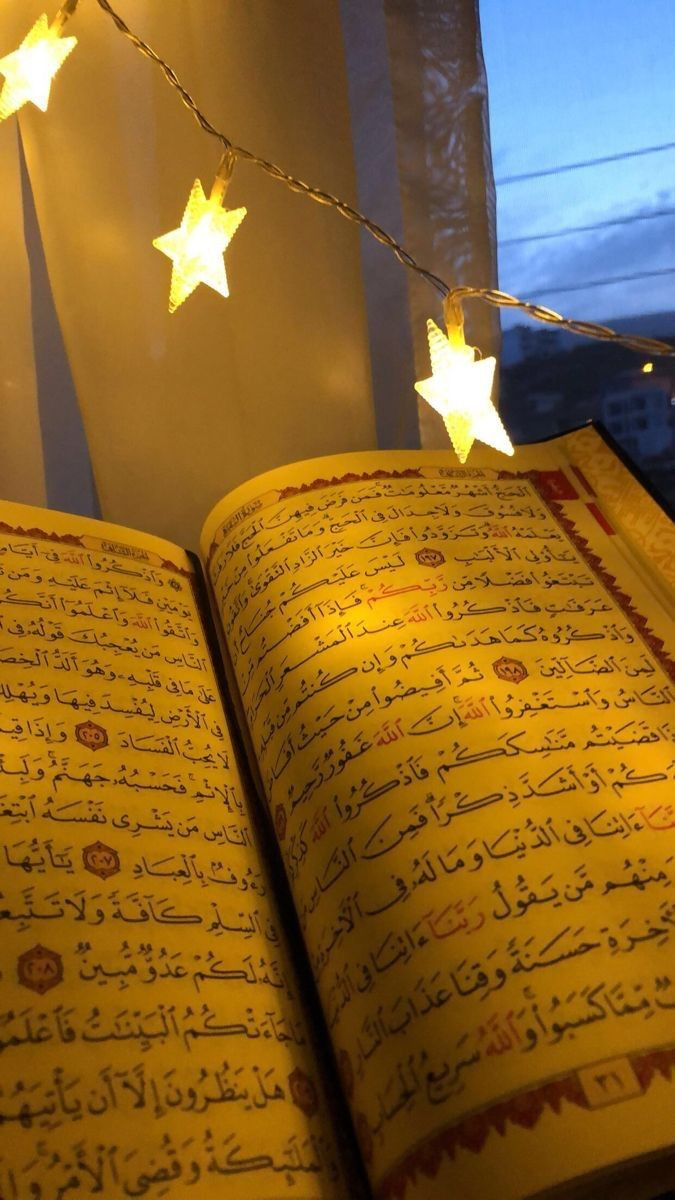 ٱلْحَجُّ أَشْهُرٌ مَّعْلُومَٰتٌ فَمَن فَرَضَ فِيهِنَّ ٱلْحَجَّ فَلَا
وَلَا فُسُوقَ وَلَا جِدَالَ فِي ٱلْحَجِّ وَمَا تَفْعَلُوا۟ مِنْ
يَعْلَمْهُ ٱللَّهُ وَتَزَوَّدُوا۟ فَإِنَّ خَيْرَ ٱلزَّادِ ٱلتَّقْوَىٰ
يَٰٓأُو۟لِي ٱلْأَلْبَٰبِ ١٩٧ لَيْسَ عَلَيْكُمْ جُنَاحٌ
تَبْتَغُوا۟ فَضْلًا مِّن رَّبِّكُمْ فَإِذَآ أَفَضْتُم
عَرَفَٰتٍ فَٱذْكُرُوا۟ ٱللَّهَ عِندَ ٱلْمَشْعَرِ ٱلْحَرَامِ
وَٱذْكُرُوهُ كَمَا هَدَىٰكُمْ وَإِن كُنتُم مِّن قَبْلِهِ
لَمِنَ ٱلضَّآلِّينَ ١٩٨ ثُمَّ أَفِيضُوا۟ مِنْ حَيْثُ
ٱلنَّاسُ وَٱسْتَغْفِرُوا۟ ٱللَّهَ إِنَّ ٱللَّهَ غَفُورٌ رَّحِيمٌ
قَضَيْتُم مَّنَٰسِكَكُمْ فَٱذْكُرُوا۟ ٱللَّهَ
أَوْ أَشَدَّ ذِكْرًا فَمِنَ ٱلنَّاسِ
ءَاتِنَا فِي ٱلدُّنْيَا وَمَا لَهُۥ فِي
وَمِنْهُم مَّن يَقُولُ رَبَّنَآ ءَاتِنَا فِي
حَسَنَةً وَقِنَا عَذَابَ ٱلنَّارِ
مِّمَّا كَسَبُوا۟ وَٱللَّهُ سَرِيعُ ٱلْحِسَابِ
٣١
وَٱذْكُرُوا۟ ٱللَّهَ فِيٓ
يَوْمَيْنِ فَلَآ إِثْمَ عَلَيْهِ وَمَن
وَٱتَّقُوا۟ ٱللَّهَ وَٱعْلَمُوٓا۟ أَنَّكُمْ
ٱلنَّاسِ مَن يُعْجِبُكَ قَوْلُهُۥ فِي
عَلَىٰ مَا فِي قَلْبِهِۦ وَهُوَ أَلَدُّ ٱلْخِصَامِ
فِي ٱلْأَرْضِ لِيُفْسِدَ فِيهَا وَيُهْلِكَ
لَا يُحِبُّ ٱلْفَسَادَ ٢٠٥ وَإِذَا قِيلَ
بِٱلْإِثْمِ فَحَسْبُهُۥ جَهَنَّمُ
ٱلنَّاسِ مَن يَشْرِي نَفْسَهُ ٱبْتِغَآءَ
رَءُوفٌۢ بِٱلْعِبَادِ ٢٠٧ يَٰٓأَيُّهَا
فِي ٱلسِّلْمِ كَآفَّةً وَلَا
إِنَّهُۥ لَكُمْ عَدُوٌّ مُّبِينٌ ٢٠٨
جَآءَتْكُمُ ٱلْبَيِّنَٰتُ فَٱعْلَمُوٓا۟
هَلْ يَنظُرُونَ إِلَّآ أَن يَأْتِيَهُمُ
وَٱلْمَلَٰٓئِكَةُ وَقُضِيَ ٱلْأَمْرُ